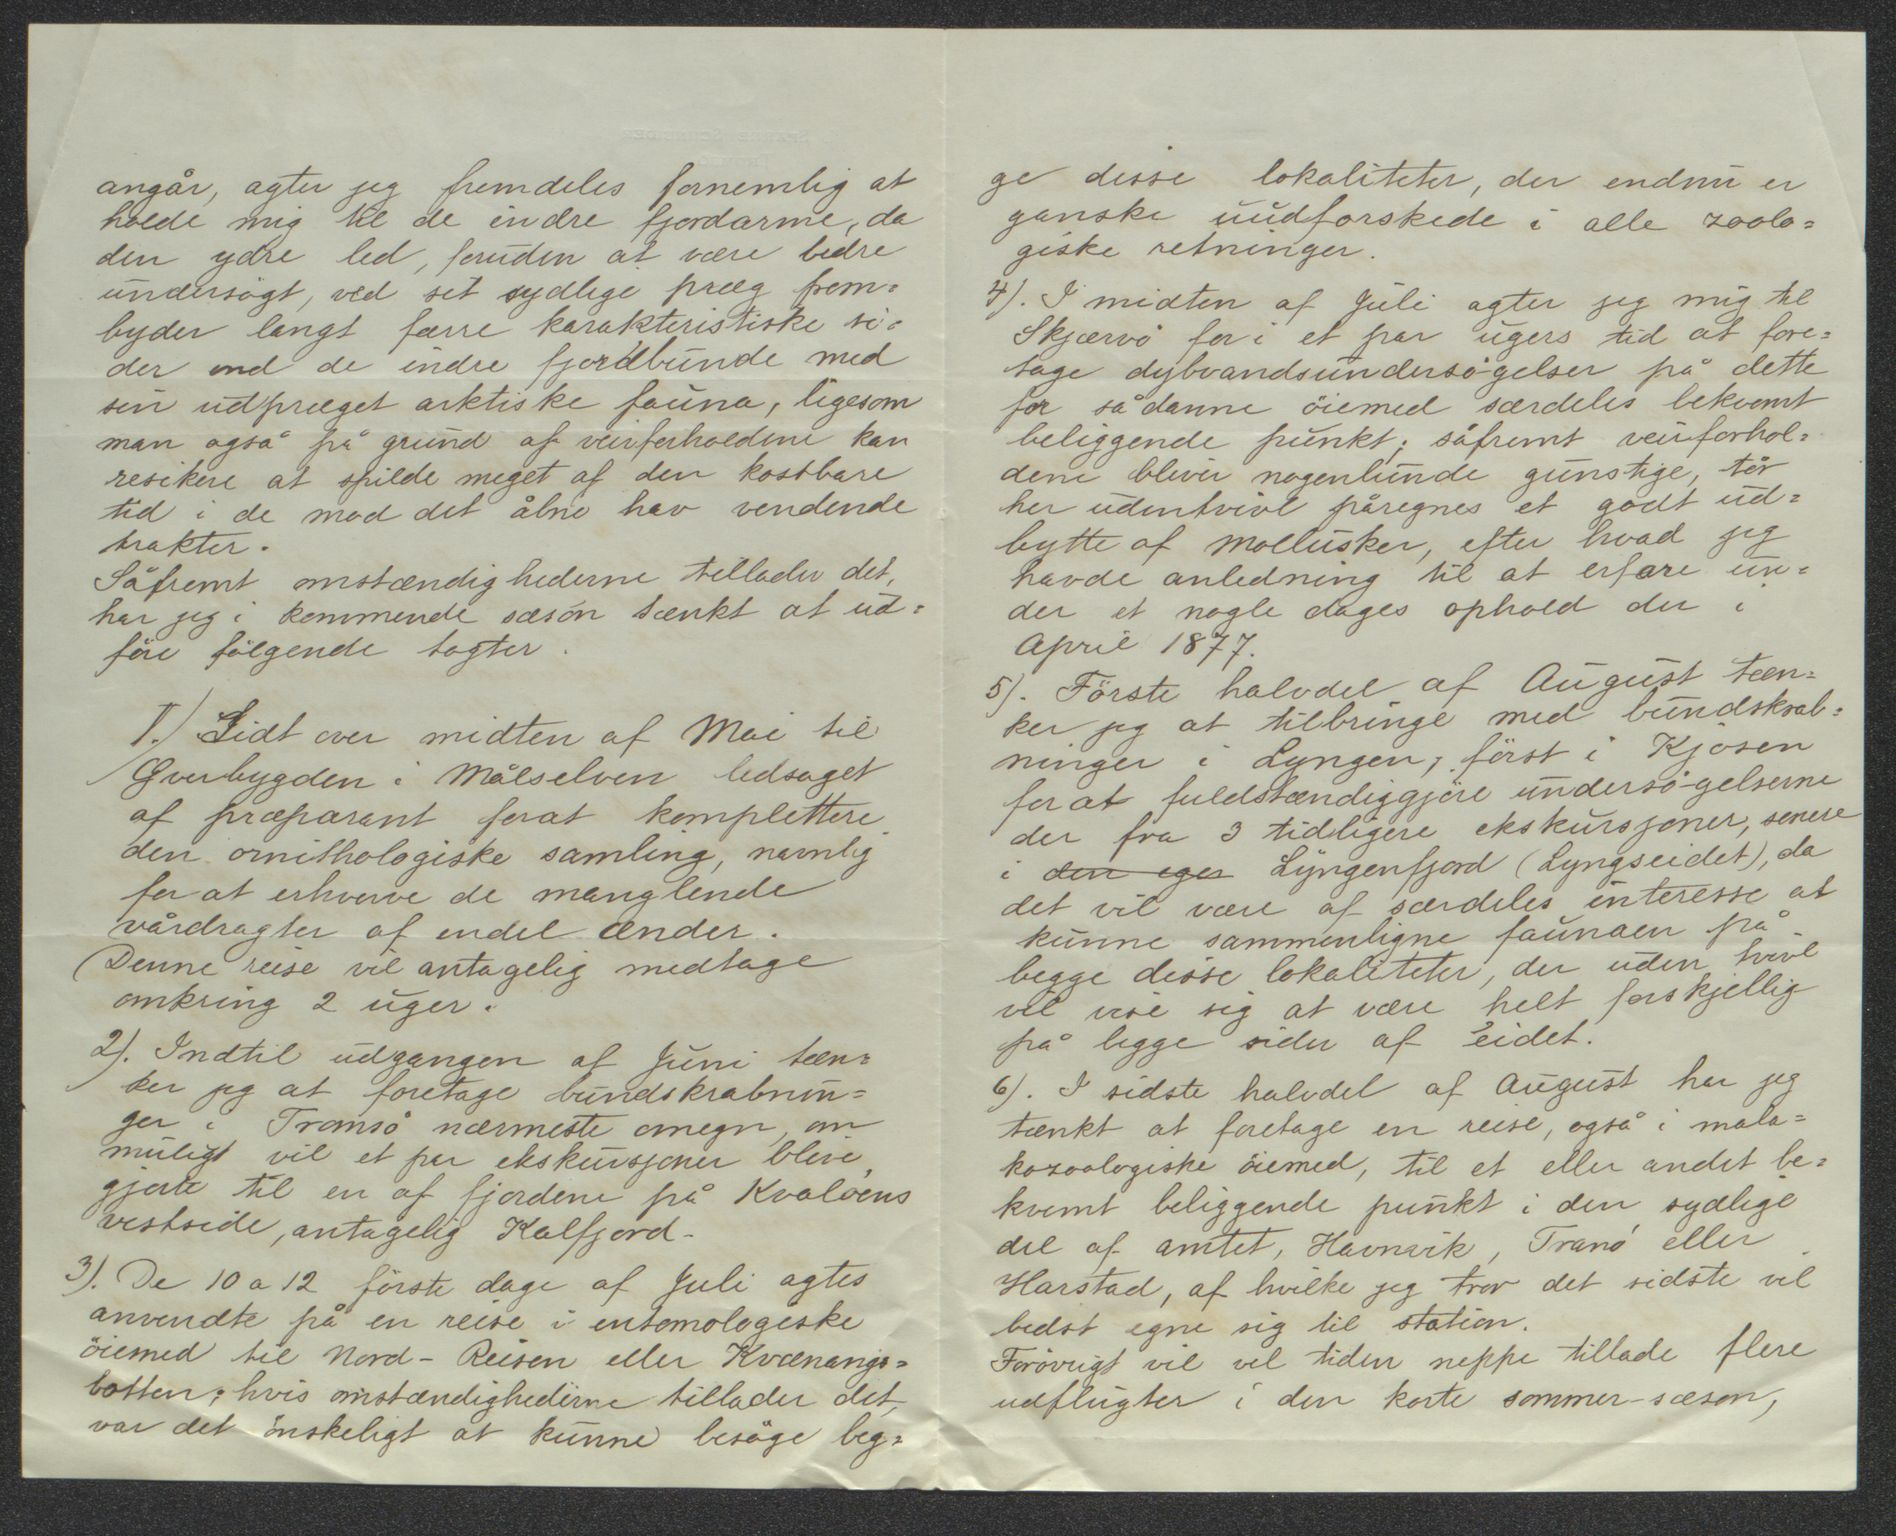 angår, agter jeg fremdeles fornemlig at
holde mig til de indre fjordarme, da
den ydre led, foruden at være bedre
undersögt, ved sit sydlige præg frem=
byder langt færre karakteristiske si=
der end de indre fjordbunde med
sin udpræget arktiske fauna, ligesom
man også på grund af veirforholdene kan
resikere at spilde meget af den kostbare
tid i de mod det åbne hav vendende
trakter.
Såfremt omstændighederne tillader det,
har jeg i kommende sæson tænkt at ud=
före fölgende togter.
1.) Lidt over midten af Mai til
Överbygden i Målselven ledsaget
af præparant forat komplettere
den ornithologiske samling, navnlig
for at erhverve de manglende
vårdragter af endel ænder.
Denne reise vil antagelig medtage
omkring 2 uger.
2). Indtil udgangen af Juni tæn=
ker jeg at foretage bundskrabnin=
ger i Tromsö nærmeste omegn, om
muligt vil et par ekskursjoner blive
gjorte til en af fjordene på Kvalöens
vestside, antagelig Kalfjord.
3). De 10 a 12 förste dage af Juli agtes
anvendte på en reise i entomologiske
öiemed til Nord-Reisen eller Kvænangs=
botten; hvis omstændighederne tillader det,
var det önskeligt at kunne besöge beg=
ge disse lokaliteter, der endnu er
ganske uudforskede i alle zoolo=
giske retninger.
4). I midten af Juli agter jeg mig til
Skjærvö for i et par ugers tid at fore=
tage dybvandsundersögelser på dette
for sådanne öiemed særdeles bekvemt
beliggende punkt; såfremt veirforhol=
dene bliver nogenlunde gunstige, tör
her udentvivl påregnes et godt ud=
bytte af mollusker, efter hvad jeg
havde anledning til at erfare un=
der et nogle dages ophold der i
April 1877.
5). Förste halvdel af August tæn=
ker jeg at tilbringe med bundskrab=
ninger i Lyngen, först i Kjosen
for at fuldstændiggjöre undersögelserne
der fra 3 tidligere ekskursjoner, senere
i den egen Lyngenfjord (Lyngseidet), da
det vil være af særdeles interesse at
kunne sammenligne faunaen på
begge disse lokaliteter, der uden tvivl
vil vise sig at være helt forskjellig
på begge sider af eidet.
6). I sidste halvdel af August har jeg
tænkt at foretage en reise, også i mala=
kozoologiske öiemed, til et eller andet be=
kvemt beliggende punkt i den sydlige
del af amtet, Havnvik, Tranö eller
Harstad, af hvilke jeg tror det sidste vil
bedst egne sig til station.
Forövrigt vil vel tiden neppe tillade flere
udflugter i den korte sommer-sæson,